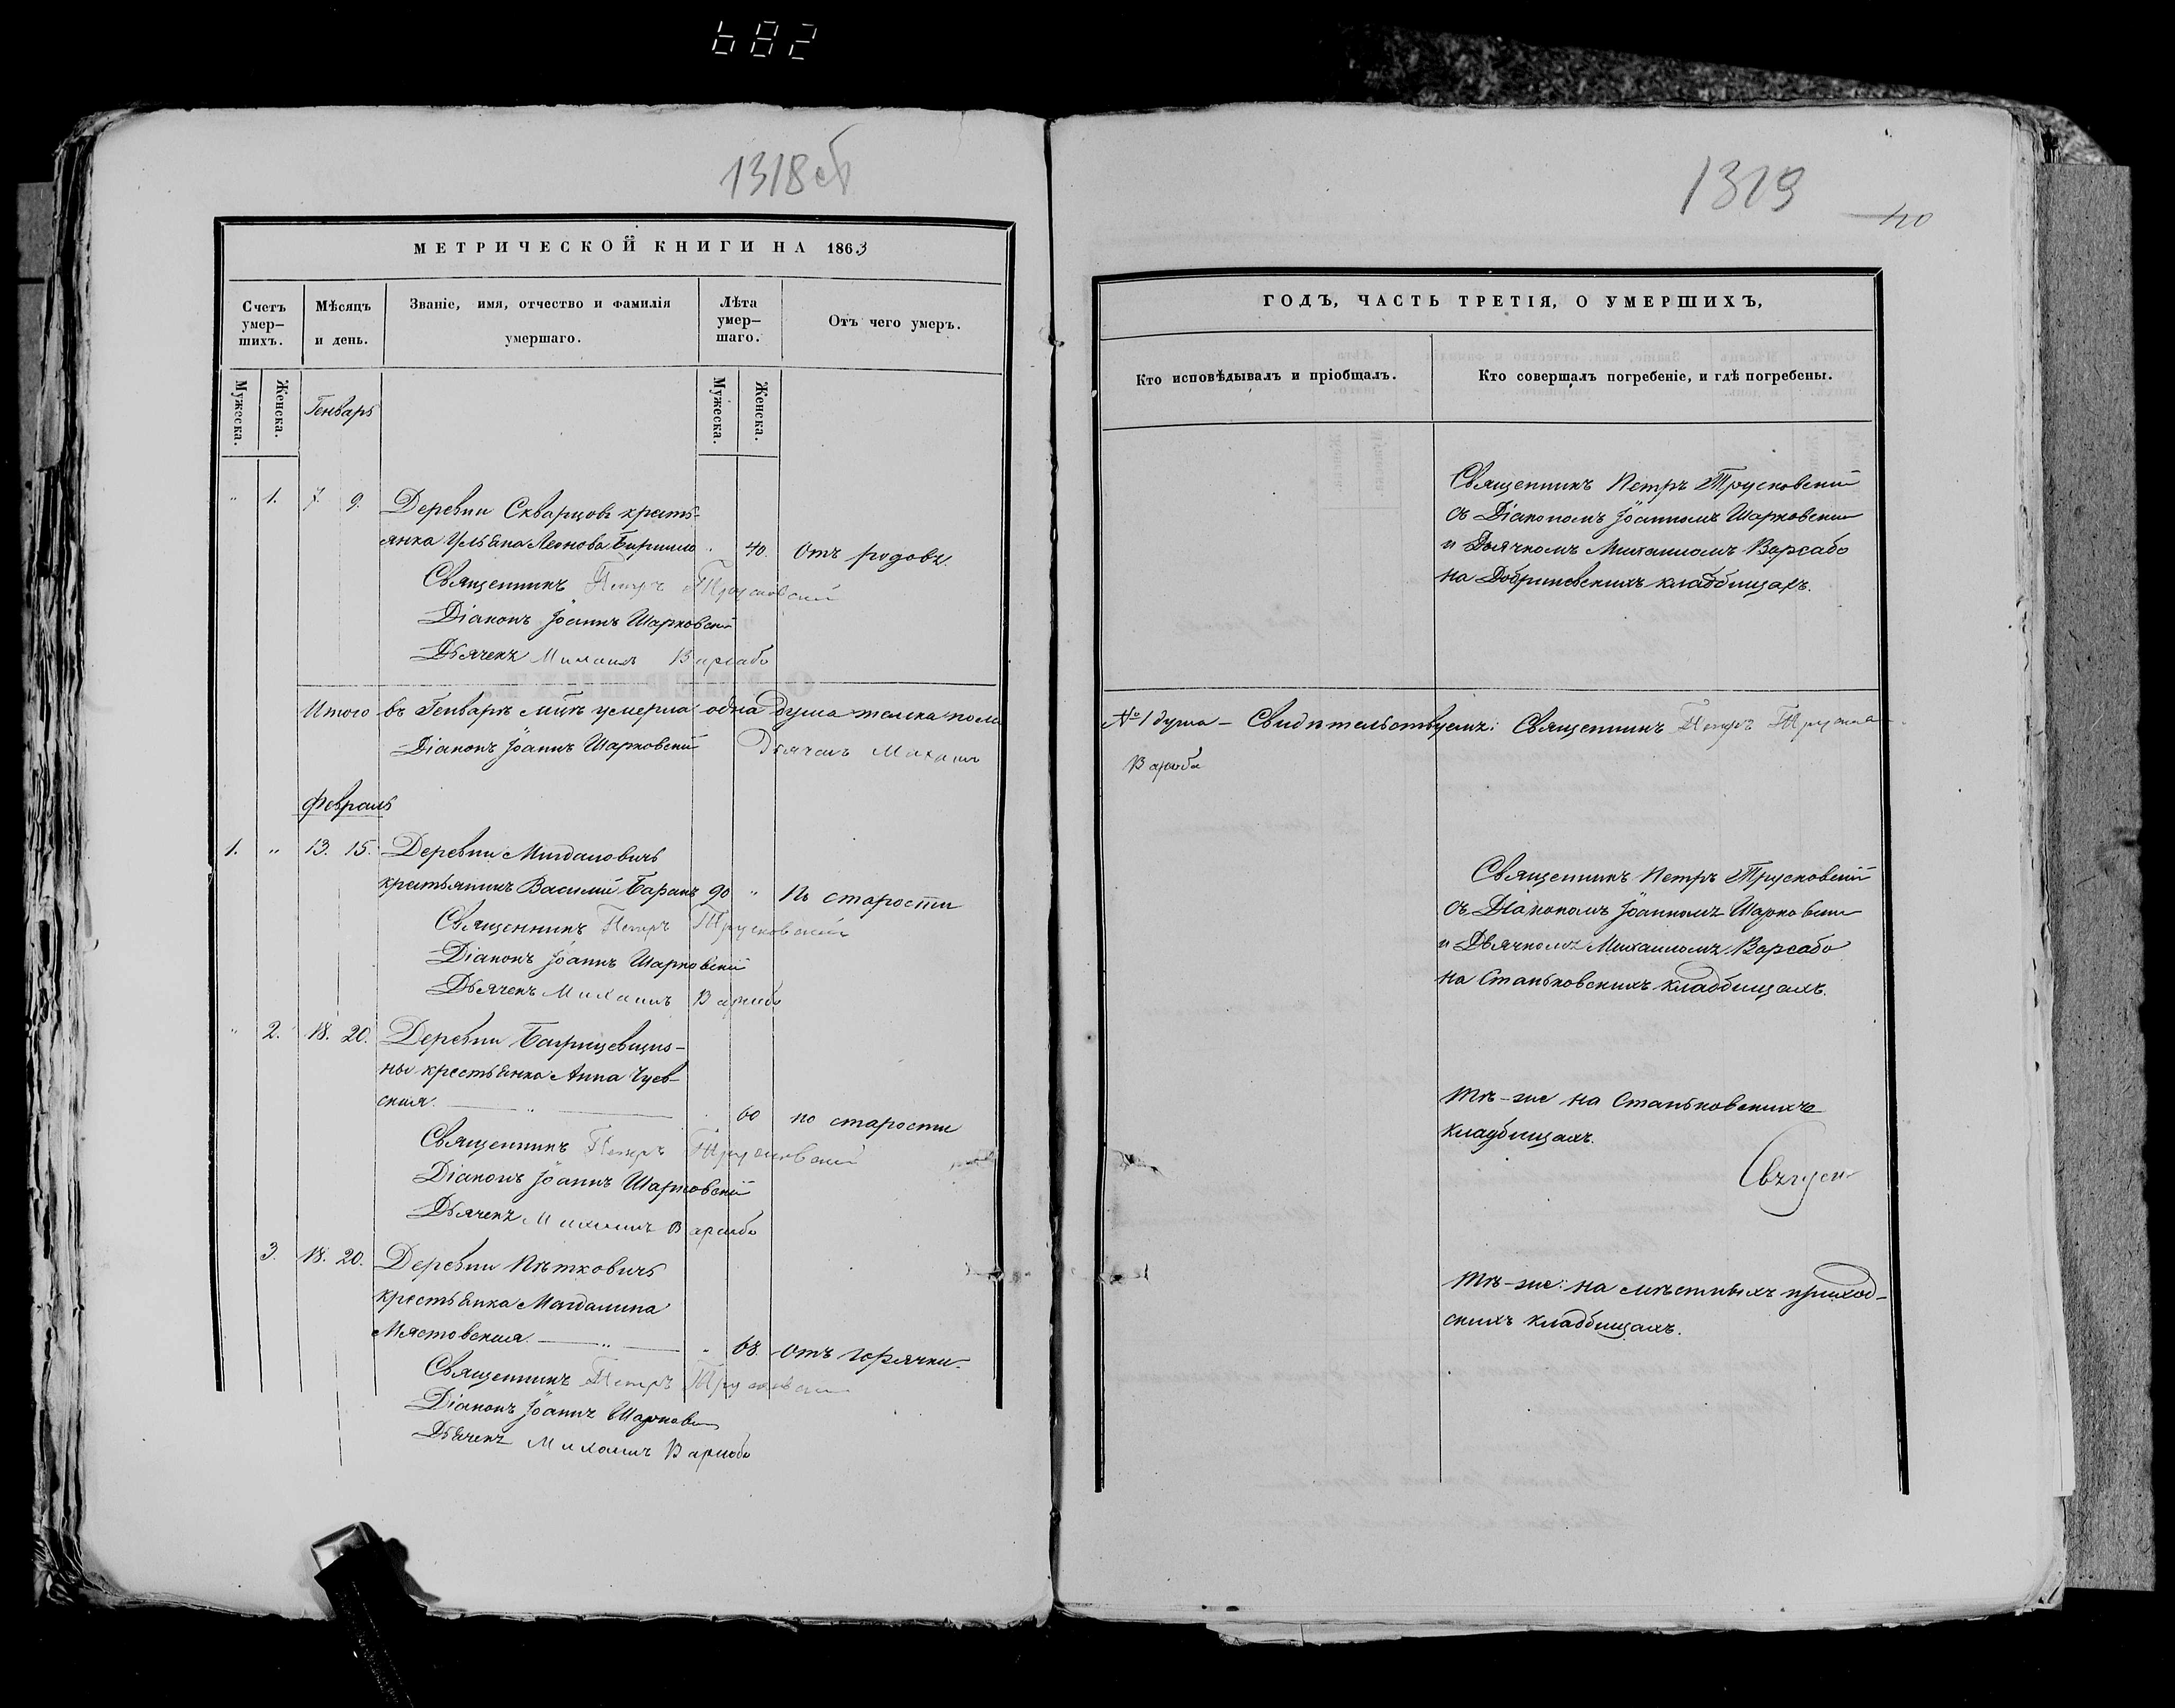 682
1318об
МЕТРИЧЕСКОЙ КНИГИ НА 1863
Счетъ умер-
шихъ.
Мѣсяцъ
и день.
Званіе, имя, отчество и фамилія
умершаго.
Лѣта
умер-
шаго.
Отъ чего умеръ.
Мужеска.
Женска.
Генварь
Мужеска.
Женска.
" 1. 7. 9. Деревни Скварцовъ кресть-
янка Ульяна Леонова " 40. Отъ родовъ.
Священникъ Петръ Трусковскій
Діаконъ Іоаннъ Шарковскій
Дьячекъ Михаилъ Варсаба
Итого въ Генварѣ м-цѣ умерла одна душа женска пола
Діаконъ Іоаннъ Шарковскій Дьячекъ Михаилъ
Февраль
1. " 13. 15. Деревни
крестьянинъ Василій Баранъ 90 " По старости
Священникъ Петръ Трусковскій
Діаконъ Іоаннъ Шарковскій
Дьячекъ Михаилъ Варсаба
" 2. 18. 20. Деревни
ны крестьянка Анна Чуев-
ская. " 60 по старости
Священникъ Петръ Трусковскій
Діаконъ Іоаннъ Шарковскій
Дьячекъ Михаилъ Варсаба
3. 18. 20. Деревни Пѣтковичъ
крестьянка Магдалина
Мястовская. " " 68. Отъ горячки.
Священникъ Петръ Трусковскій
Діаконъ Іоаннъ Шарковскій
Дьячекъ Михаилъ Варсаба
1319
40
ГОДЪ, ЧАСТЬ ТРЕТІЯ, О УМЕРШИХЪ,
Кто исповѣдывалъ и пріобщалъ.
Кто совершалъ погребеніе, и гдѣ погребены.
Священникъ Петръ Трусковскій
съ Діакономъ Іоанномъ Шарковскимъ
и Дьячкомъ Михаиломъ Варсабо
на Добриневскихъ кладбищахъ.
№ 1 душа – Свидѣтельствуемъ: Священникъ Петръ
Варсаба
Священникъ Петръ Трусковскій
съ Діакономъ Іоанномъ Шарковскимъ
и Дьячкомъ Михаиломъ Варсабо
на Станьковскихъ кладбищахъ.
Тѣ-же на Станьковскихъ
кладбищахъ.
Тѣ-же: на мѣстныхъ приход-
скихъ кладбищахъ.